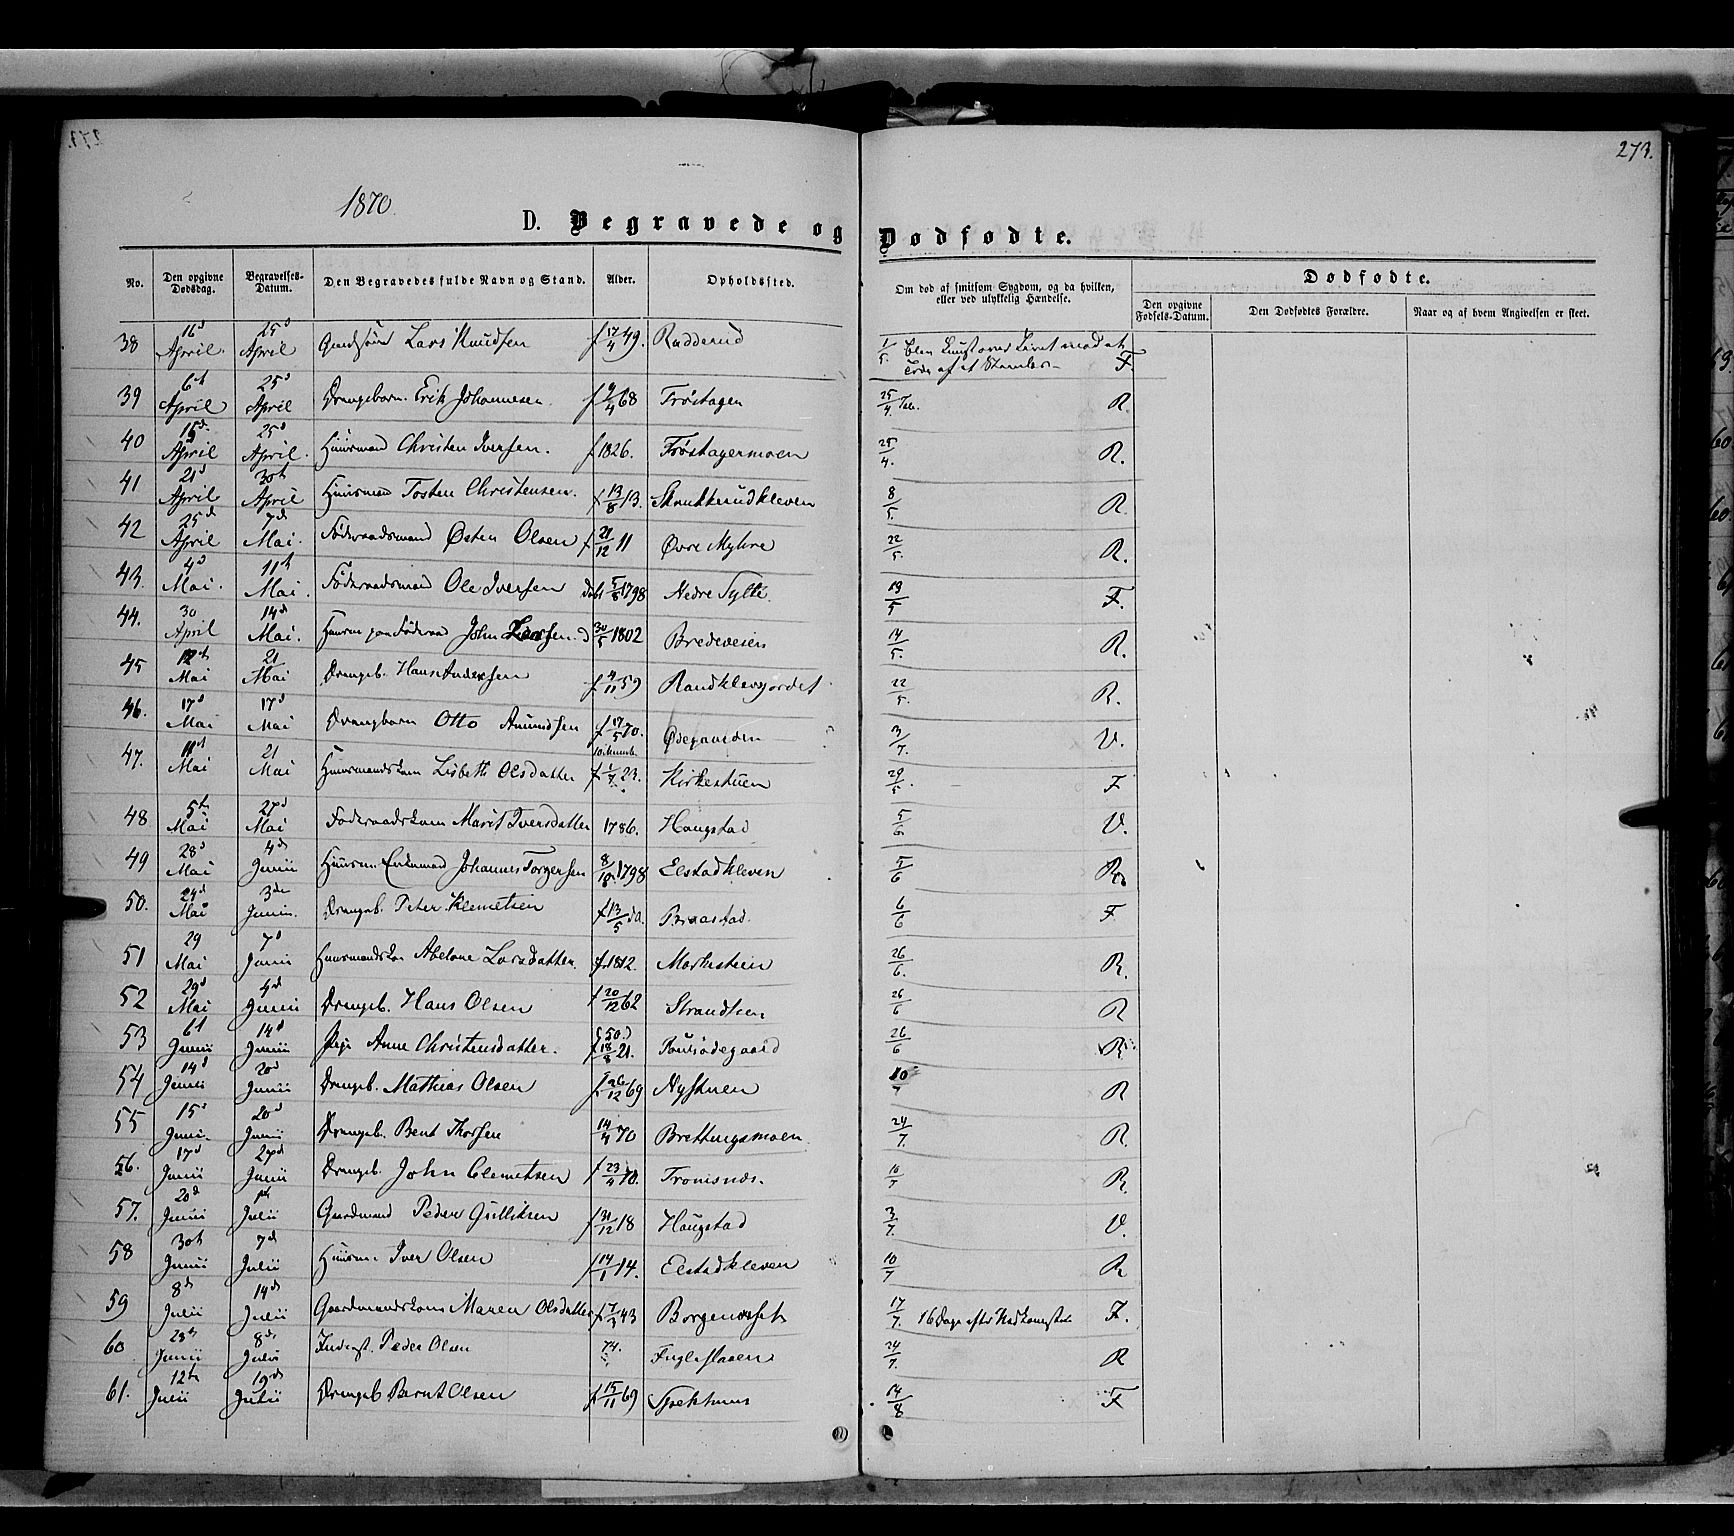 273.
1870.
D. Begravede og Dødfødte.
No. Den opgivne Dødsdag. Begravelses-Datum. Den Begravedes fulde Navn og Stand. Alder. Opholdssted. Om død af smitsom Sygdom, og da hvilken, eller ved ulykkelig Hændelse. Dødfødte.
Den opgivne Fødsels-Datum. Den Dødfødtes Forældre. Naar og af hvem Angivelsen er skeet.
38 16d April. 25d April Lars Knudsen f 17/4 49. Rudderud 1/5 F.
39 6th April 25d April Drengebarn Erik Johannesen f 9/4 68 Frøstagen 25/4 R.
40 15d April 25d April. Huusmand Christen Iversen. f 1826. Frøstagermoen 25/4. R.
41 21d April 30th April Huusmand Tosten Christensen. f 13/8 13. Skrukkerudkleven 8/5. R.
42 25d April 7d Mai. Føderaadsmand Østen Olsen f 21/12 11 Øvre Myhre 22/5. R.
43. 4d Mai. 11th Mai. Føderaadsmand Ole Iversen døbt 5/8 1798 Nedre Sylte. 19/5 F.
44. 30 April 14d Mai. John Larsen. d 30/5 1802 Bredevesen 14/5. R.
45 12th Mai 21 Mai Drengeb. Hans Andersen f 4/11 59 Randklevgjordet 22/5. R.
46. 17d Mai 17d Mai Drengbarn Otto Amundsen f 17/5 70. Ødegaarden 3/7. V.
47. 11th Mai 21 Mai Huusmandskone Lisbeth Olsdatter f 1/7 23. Kirkestuen 29/5. F
48 5th Mai 27d Mai Føderaadskone Marit Iversdatter 1786. Haugstad 5/6. V.
49 28d Mai 4d Junii Huusm. Enkemand Johannes Torgersen 8/10 1798 Elstadkleven 5/6 R.
50. 24d Mai 3die Junii. Drengeb. Peter Klemetsen f 13/5 70. Braastad. 6/6 F
51 29 Mai 7d Junii Huusmandskone Abelone Larsdatter. f 1812. Markestuen 26/6. R.
52 29d Mai 4d Junii Drengeb. Hans Olsen f 20/12 62 Strandtuen 26/6 R
53 6t Junii 14d Junii Pige Anne Christensdatter. (50.) f 18/8 21. Poulsødegaard 26/6 R
54 14d Junii 20d Junii Drengeb. Mathias Olsen f 26/12 69 Nystuen 10/7 R
55 15d Junii. 20d Junii Drengeb. Bent Thorsen 14/4 70 Brettingsmoen 24/7. R.
56. 17d Junii 27d Junii Drengeb. John Clemetsen f 23/4 70. Tromsnes. 10/7 R.
57. 20d Junii 1st Julii Gaardmand Peder Gulliksen f 31/12 18 Haugstad 3/7. V.
58 30th Junii 7d Julii Huusm. Iver Olsen f 14/1 14. Elstadkleven 10/7 R
59 8d Julii 14d Julii Gaardmandskone Maren Olsdatter f 7/3 43 Borgenøset 17/7. 16 Dage efter Nedkomsten F.
60 28th Junii 8d Julii Inderst. Peder Olsen 74. Fugleslaaen 24/7. R
61. 12th Julii 19d Julii Drengeb Bernt Olsen f 15/11 69 Spekhuus 14/8 F